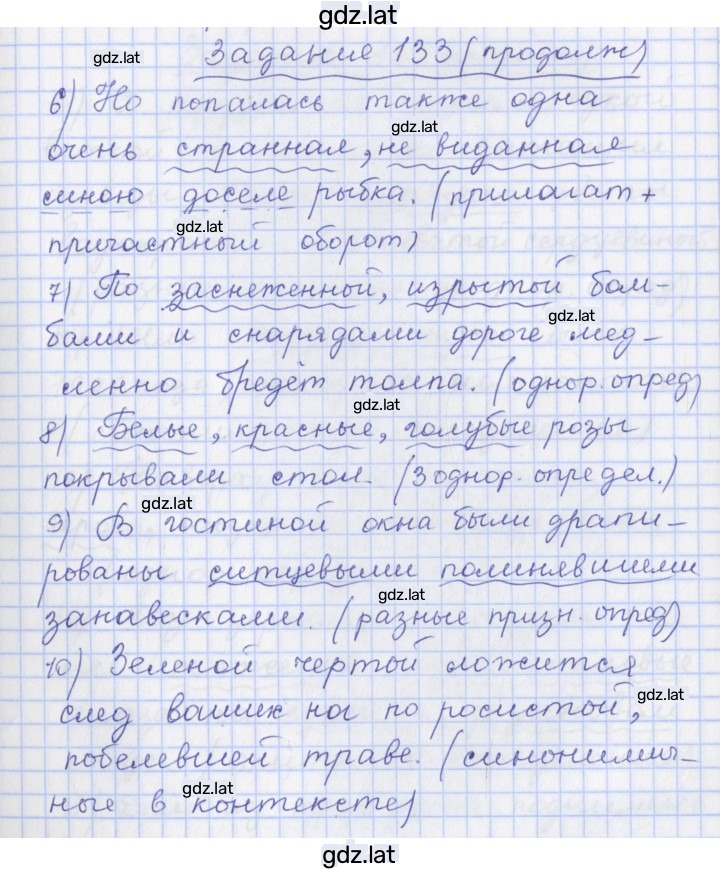 gdz.lat
gdz.lat
Задание 133 (продолж)
6) Но попалась также одна
gdz.lat
очень странная, не виданная
мною доселе рыбка. (прилагат +
gdz.lat
причастный оборот)
7) По заснеженной, изрытой бом-
gdz.lat
бами и снарядами дороге мед-
ленно бредёт толпа. (однор. опред)
gdz.lat
8) Белые, красные, голубые розы
покрывали стол. (3 однор. определ.)
gdz.lat
9) В гостиной окна были драпи-
рованы ситцевыми полинявшими
gdz.lat
занавесками. (разные призн. опред)
10) Зеленой чертой ложится
gdz.lat
след ваших ног по росистой,
побелевшей траве. (синонимич-
gdz.lat
ные в контексте)
gdz.lat